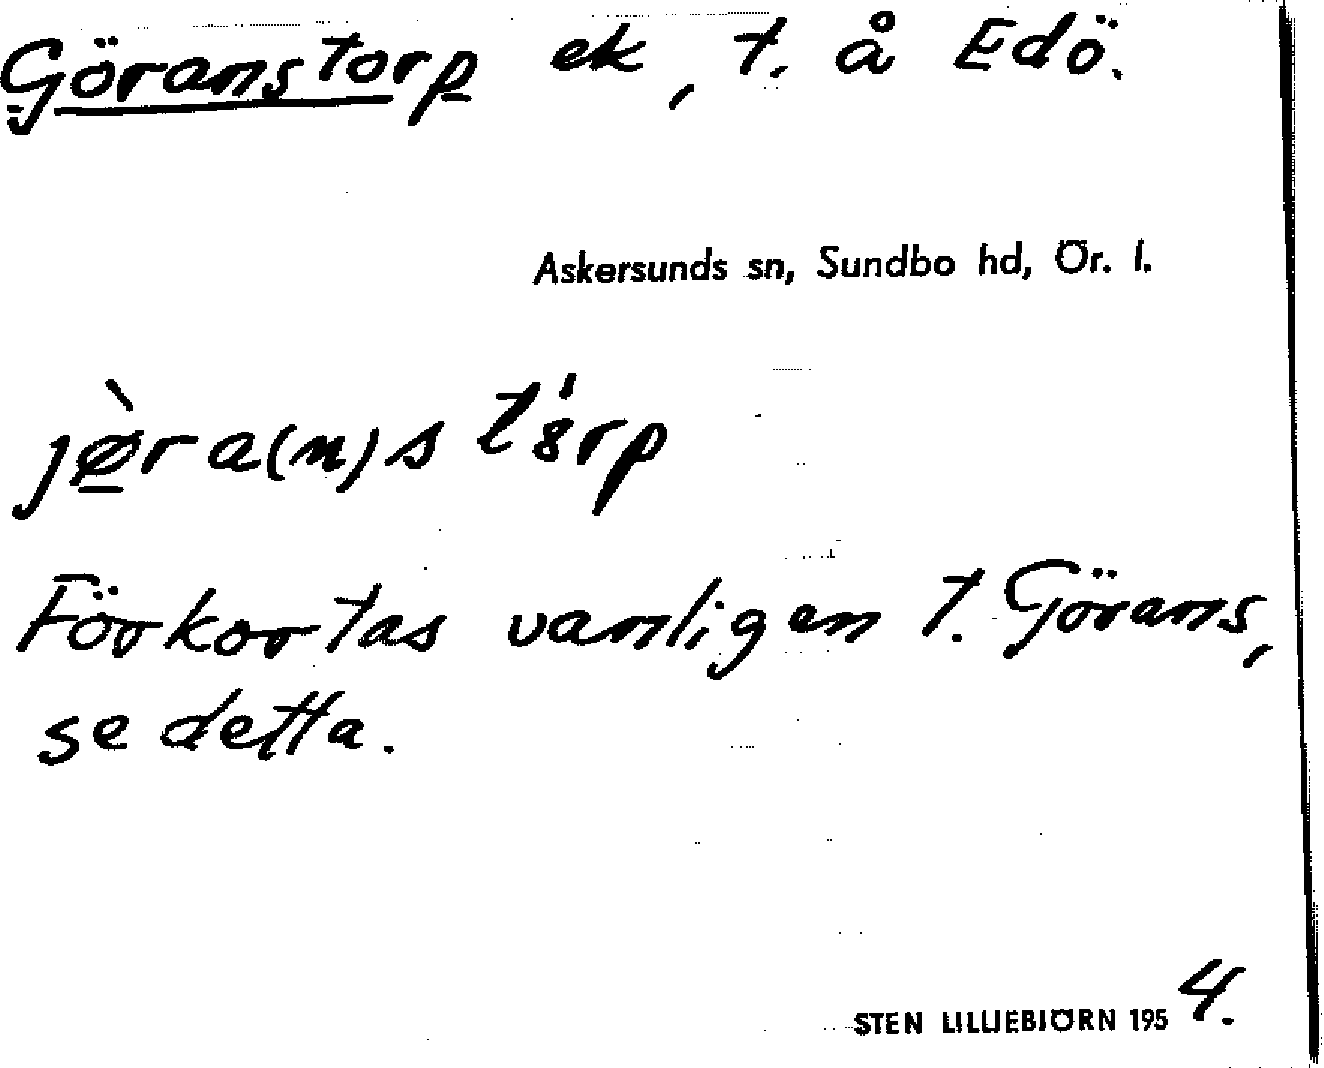 Göranstorp ek, t. å Edö.
Askersunds sn, Sundbo hd, Ör. l.
jø̀ra(n)s
Förkortas vanligen t. Görans,
se detta.
STEN LILLIEBJÖRN 1954.